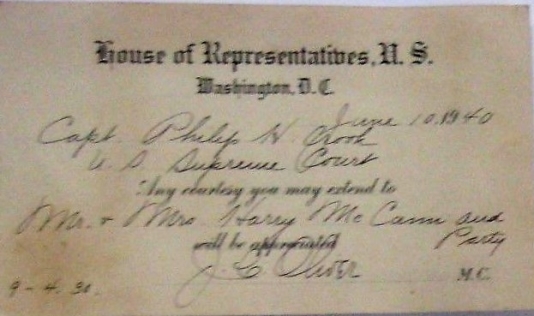 House of Representatives, U. S.
Washington, D. C.
June 10, 1940
Capt. Philip H. Crook
U. S. Supreme Court
Any courtesy you may extend to
Mr. + Mrs. Harry McCann and
Party
will be appreciated
J. C. Oliver
M. C.
9-4.30.